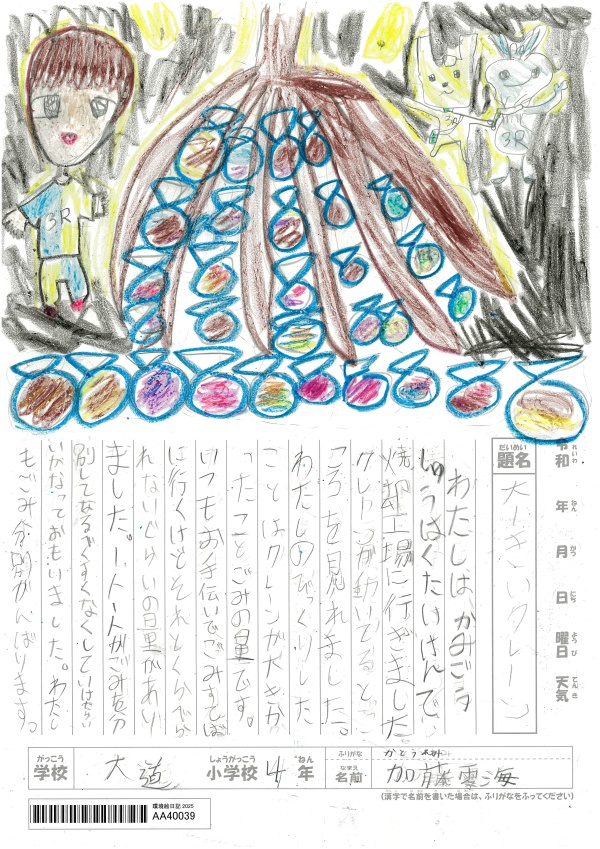 3R
3R
3R
令和 れいわ 年 ねん 月 がつ 日 にち 曜日 ようび 天気 てんき
題名 だいめい 大きいクレーン
わたしは、かみごう
しゅうはくたいけんで、
焼却工場に行ぎました
クレーンが動いてると
ころを見れました。
わたしのびっくりした
ことはクレーンが大きか
ったことごみの量です。
いつもお手伝いでごみすてば
に行くけどそれとくらべら
れないぐらいの量があり
ました。一人一人がごみを分
別してなるべくすくなくしていけたらい
いかなっておもいました。わたし
もごみ分別がんばります。
学校 がっこう 大道 小学校 しょうがっこう 4年 ねん
ふりがな かとう
名前 なまえ 加藤 海
(漢字で名前を書いた場合は、ふりがなをふってください)
環境絵日記 2025
AA40039